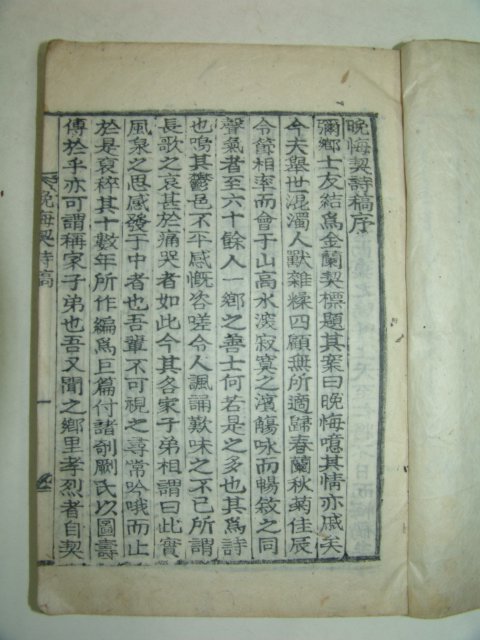 晩悔契詩稿序
彌鄉士友結爲金蘭契標題其案曰晩悔噫其情亦戚矣
今夫擧世混濁人獸雜糅四顧無所適歸春蘭秋菊佳辰
令節相率而會于山高水深寂寞之濱觴咏而暢敘之同
聲氣者至六十餘人一鄉之善士何若是之多也其爲詩
也嗚其鬱邑不平感慨咨嗟令人諷誦歎味之不已所謂
長歌之哀甚於痛哭者如此今其各家子弟相謂曰此實
風泉之思感發于中者也吾輩不可視之尋常吟哦而止
於是裒稡其十數年所作編爲巨篇付諸剞劂氏以圖壽
傳於乎亦可謂稱家子弟也吾又聞之鄉里孝烈者自契
晩悔契詩稿
一